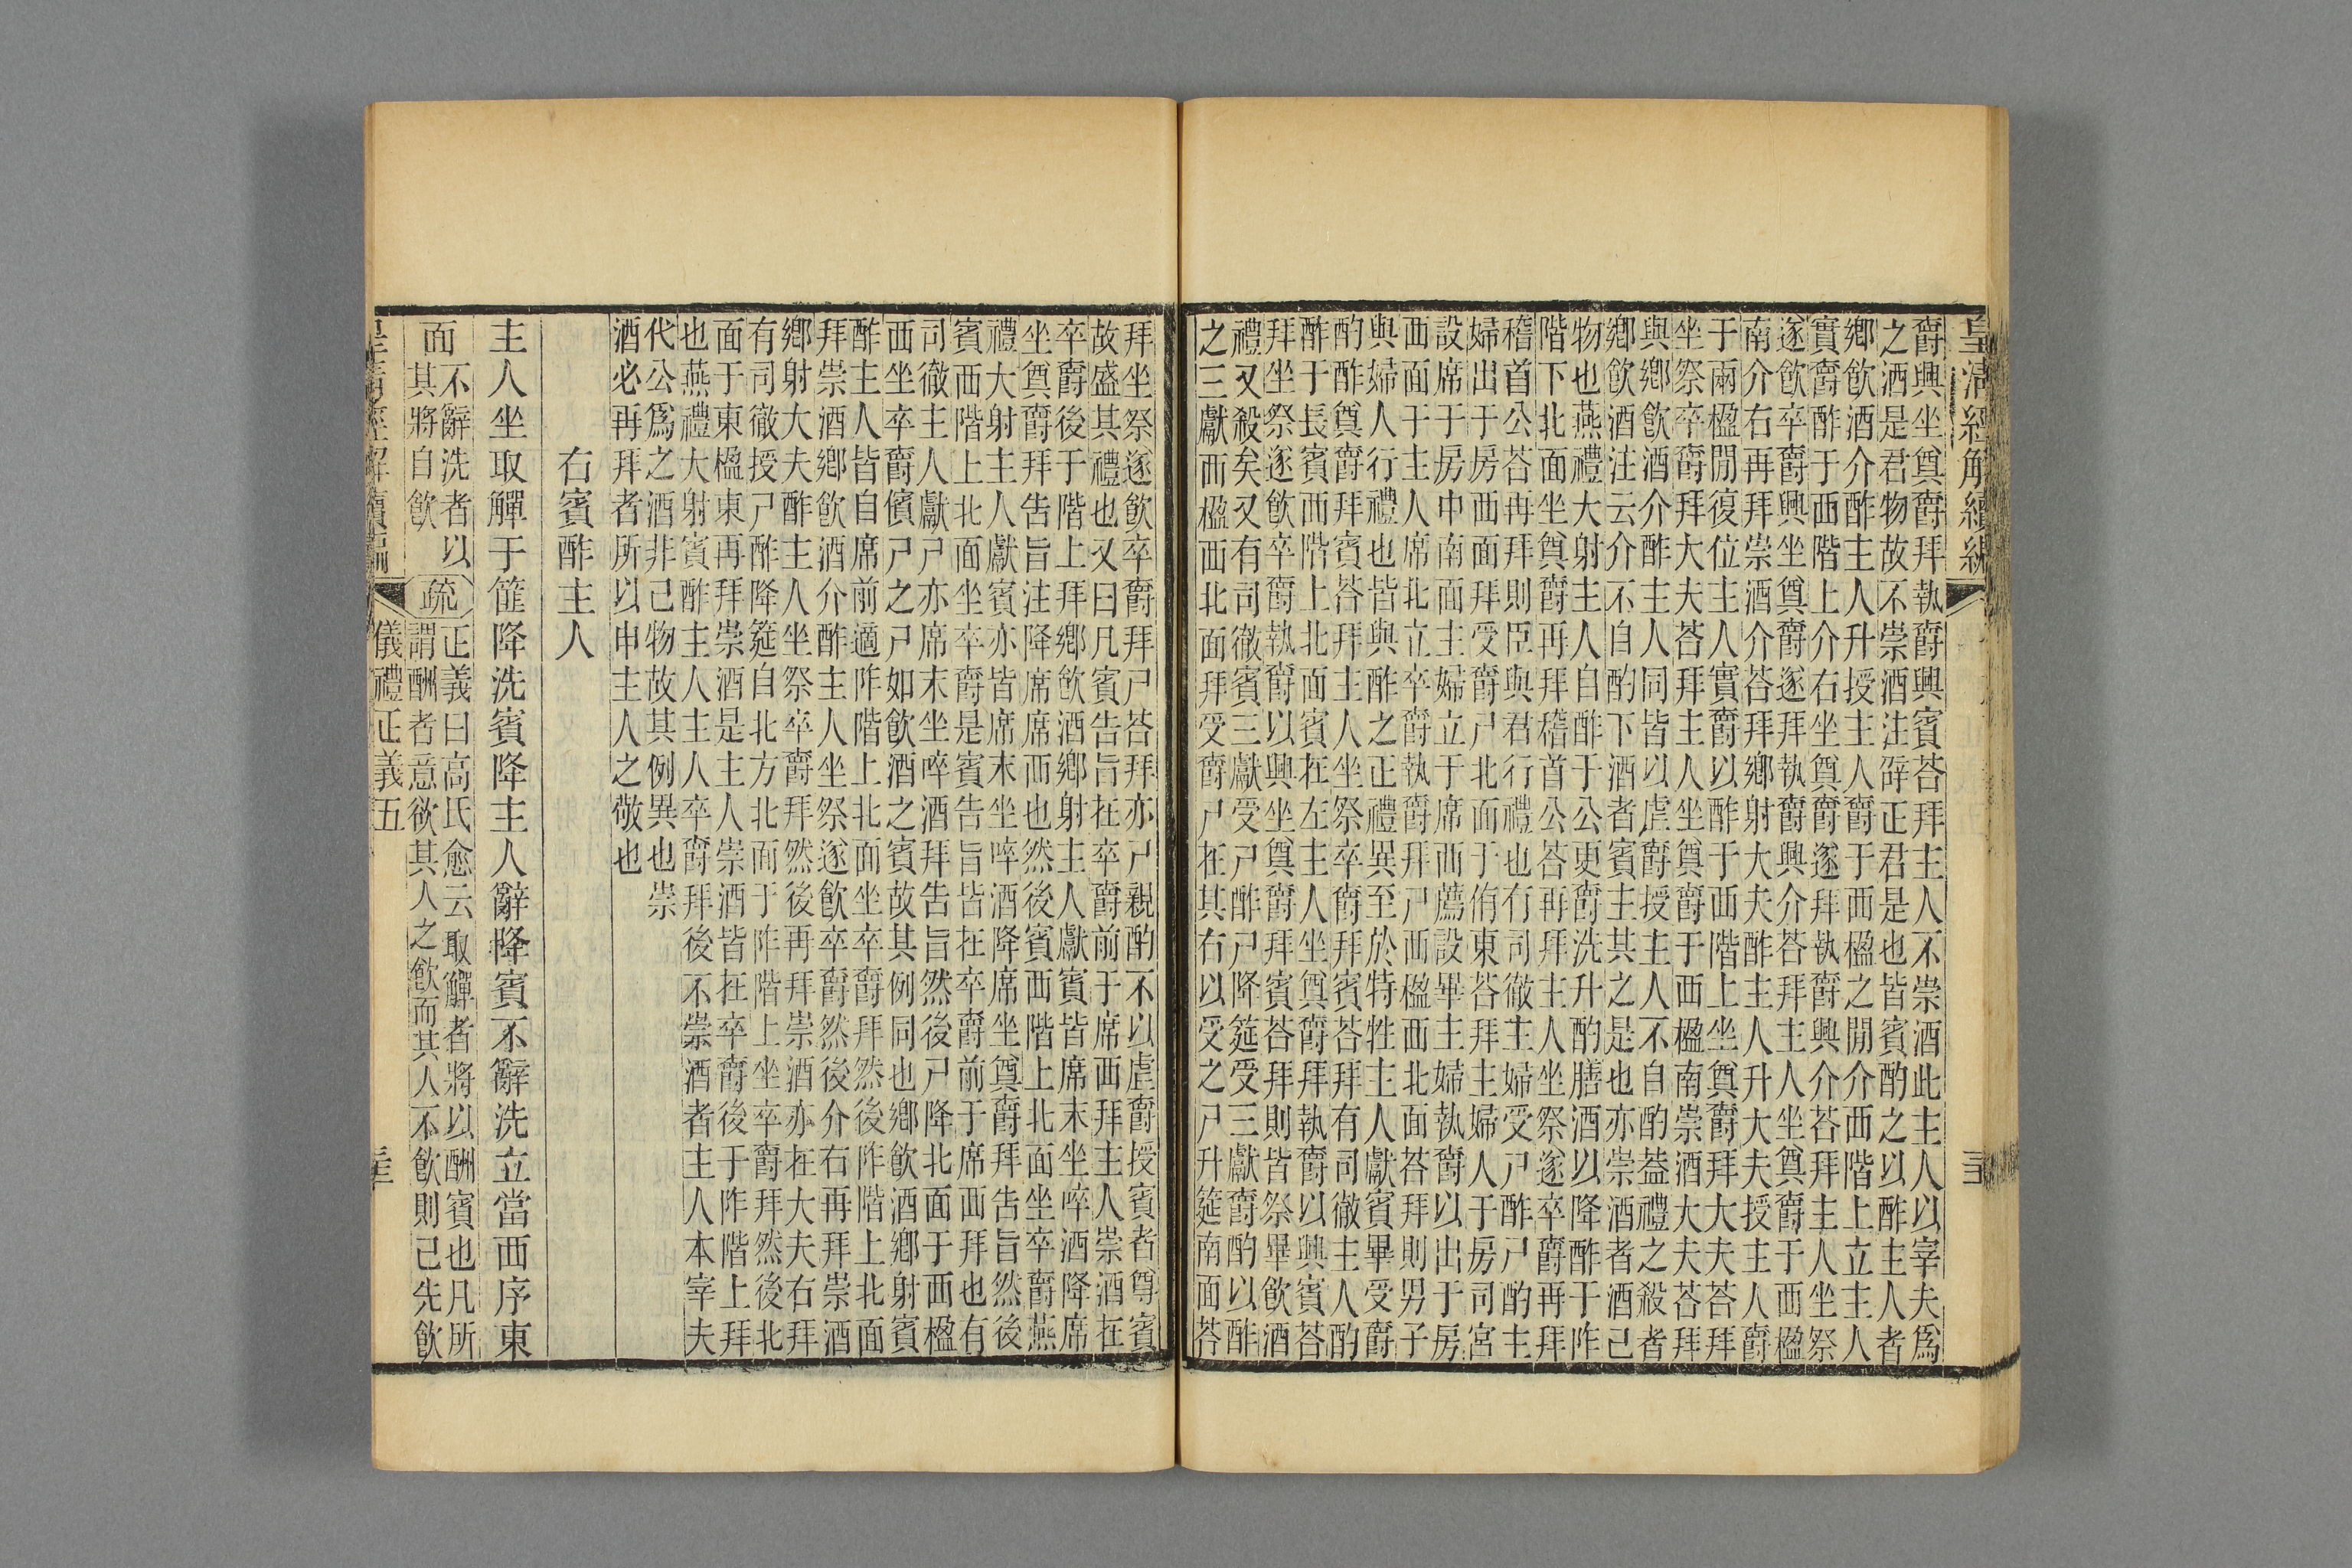 皇清經解續編
爵興坐奠爵拜執爵興賓荅拜主人不崇酒此主人以宰夫爲
之酒是君物故不崇酒注辭正君是也皆賓酌之以酢主人者
鄉飲酒介酢主人升授主人爵于西楹之閒介西階上立主人
實爵酢于西階上介右坐奠爵遂拜執爵興介荅拜主人坐祭
遂飲卒爵興坐奠爵遂拜執爵興介荅拜主人坐奠爵于西楹
南介右再拜崇酒介荅拜鄉射大夫酢主人升大夫授主人爵
于兩楹閒復位主人實爵以酢于西階上坐奠爵拜大夫荅拜
坐祭卒爵拜大夫荅拜主人坐奠爵于西楹南崇酒大夫荅拜
與鄉飲酒介酢主人同皆以虛爵授主人不自酌葢禮之殺者
鄉飲酒注云介不自酌下酒者賓主其之是也亦崇酒者酒己
物也燕禮大射主人自酢于公更爵洗升酌膳酒以降酢于阼
階下北面坐奠爵再拜稽首公荅再拜主人坐祭遂卒爵再拜
稽首公荅再拜則臣與君行禮也有司徹主婦受尸酢尸酌主
婦出于房西面拜受爵尸北面于侑東荅拜主婦人于房司宮
設席于房中南面主婦立于席西薦設畢主婦執爵以出于房
西面于主人席北立卒爵執爵拜尸西楹西北面荅拜則男子
與婦人行禮也皆與酢之正禮異至於特牲主人獻賓畢受爵
酌酢奠爵拜賓荅拜主人坐祭卒爵拜賓荅拜有司徹主人酌
酢于長賓西階上北面賓在左主人坐奠爵拜執爵以興賓荅
拜坐祭遂飲卒爵執爵以興坐奠爵拜賓荅拜則皆祭畢飲酒
禮又殺矣又有司徹賓三獻受尸酢尸降筵受三獻爵酌以酢
之三獻西楹西北面拜受爵尸在其右以受之尸升筵南面荅
拜坐祭遂飲卒爵拜尸荅拜亦尸親酌不以虛爵授賓者尊賓
故盛其禮也又曰凡賓告旨在卒爵前于席西拜主人崇酒在
卒爵後于階上拜鄉飲酒鄉射主人獻賓皆席末坐啐酒降席
坐奠爵拜告旨注降席席西也然後賓西階上北面坐卒爵燕
禮大射主人獻賓亦皆席末坐啐酒降席坐奠爵拜告旨然後
賓西階上北面坐卒爵是賓告旨皆在卒爵前于席西拜也有
司徹主人獻尸亦席末坐啐酒拜告旨然後尸降北面于西楹
西坐卒爵儐尸之尸如飲酒之賓故其例同也鄉飲酒鄉射賓
酢主人皆自席前適阼階上北面坐卒爵拜然後阼階上北面
拜崇酒鄉飲酒介酢主人坐祭遂飲卒爵然後介右再拜崇酒
鄉射大夫酢主人坐祭卒爵拜然後再拜崇酒亦在大夫右拜
有司徹授尸酢降筵自北方北面于阼階上坐卒爵拜然後北
面于東楹東再拜崇酒是主人崇酒皆在卒爵後于阼階上拜
也燕禮大射賓酢主人主人卒爵拜後不崇酒者主人本宰夫
代公爲之酒非己物故其例異也崇
酒必再拜者所以申主人之敬也
右賓酢主人
主人坐取觶于篚降洗賓降主人辭降賓不辭洗立當西序東
面不辭洗者以其將自飲疏正義曰高氏愈云取觶者將以酬賓也凡所
謂酬者意欲其人之飲而其人不飲則己先飲
儀禮正義五